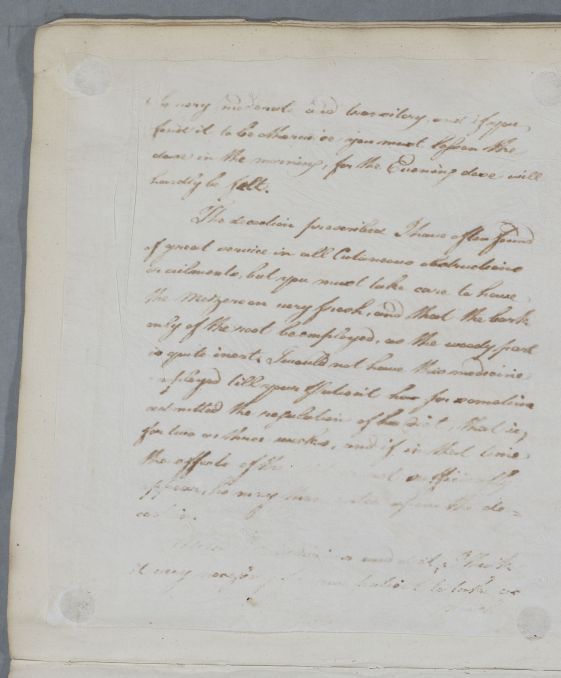 be very moderate and transitory, and if you
find it to be otherwise you must lessen the
dose in the morning, for the Evening dose will
hardly be felt.
The decoction prescribed I have often found
of great service in all Cutaneous obstructions
or ailments, but you must take care to have
the Mezereon very fresh, and that the bark
only of the root be employed, as the woody part
is quite inert. I would not have this medicine
employed till your Patient has for sometime
submitted the regulation of her Diet, that is,
for two or three weeks, and if in that time
the effects of the sufficiently
appear, he may then enter upon the de=
it very to take